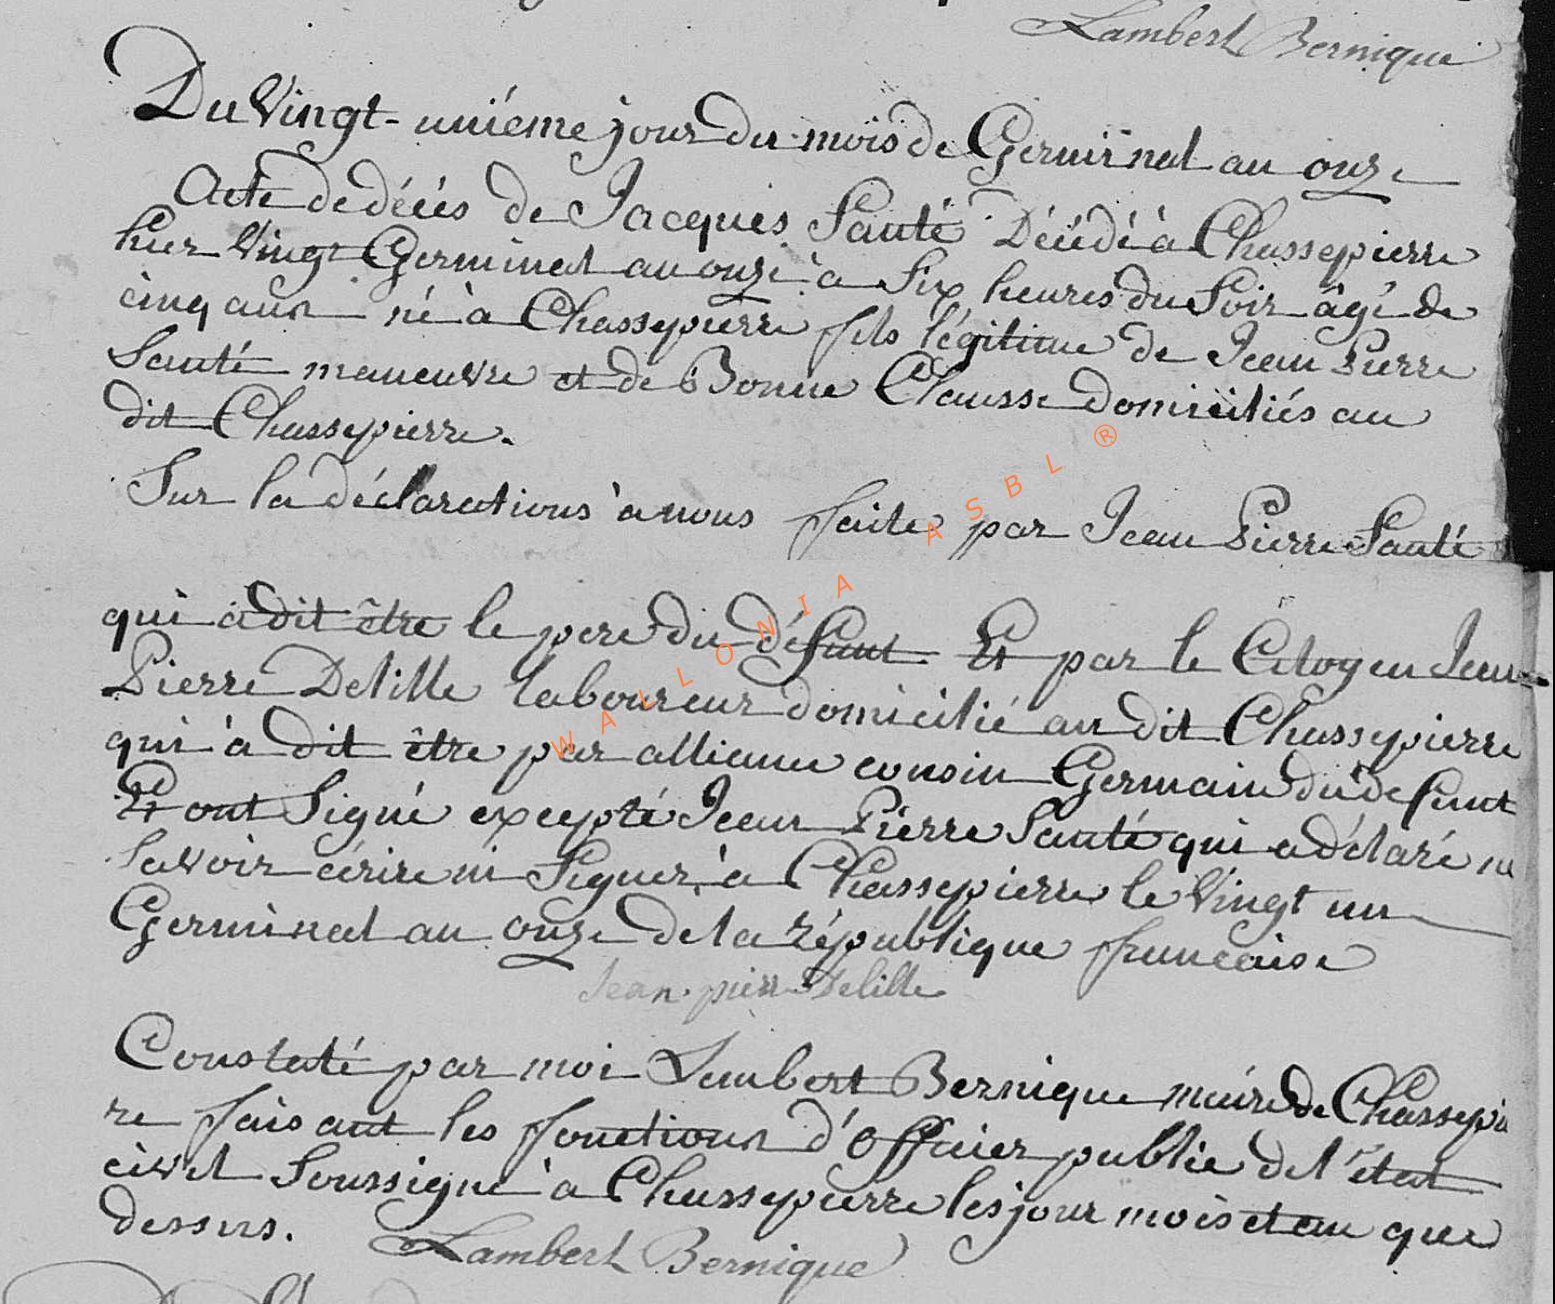 Lambert Bernique
Du Vingt-uniéme jour du mois de Germinal an onze
Acte de décés de Jacques Santé Décédé à Chassepierre
hier Vingt Germinal an onze à Six heures du Soir âgé de
cinq ans né à Chassepierre fils légitime de Jean Pierre
Santé maneuvre et de Bonne Clausse Domiciliés au
dit Chassepierre.
Sur la déclarations à nous faite par Jean Pierre Santé
qui a dit être le pere du défunt. Et par le Citoyen Jean
Pierre Delille laboureur domicilié au dit Chassepierre
qui à dit être par alliance cousin Germain du défunt
Et ont Signé excepté Jean Pierre Santé qui a déclaré ne
savoir écrire ni Signer, à Chassepierre le Vingt un
Germinal an onze de la république francaise
Jean-pierre Delille
Constaté par moi Lambert Bernique maire de Chassepier
re faisant les fonctions d'Officier public de l'état
civil Soussigné à Chassepierre les jour mois et an que
dessus.
Lambert Bernique
WALLONIA ASBL ®